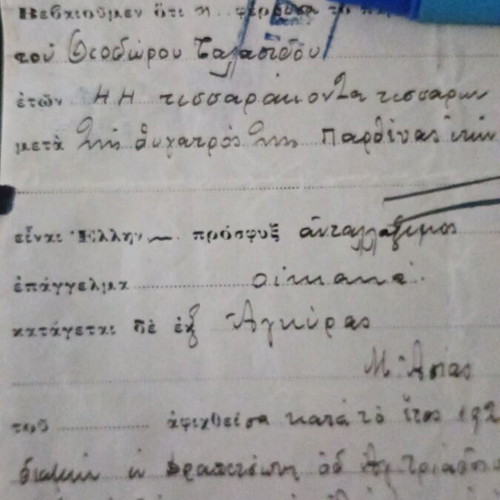 Βεβαιοῦμεν ὅτι ἡ φέρουσα τὸ
τοῦ Θεοδώρου
ἐτῶν 44 τεσσαράκοντα τεσσάρων
μετὰ τῆς θυγατρός της Παρθένας
εἶναι Ἕλλην πρόσφυξ ἀνταλλάξιμος
ἐπάγγελμα οἰκιακά
κατάγεται δὲ ἐξ Ἀγκύρας
Μ. Ἀσίας
τοῦ ἀφιχθεῖσα κατὰ τὸ ἔτος 192
ὁδ. Ἁγ.